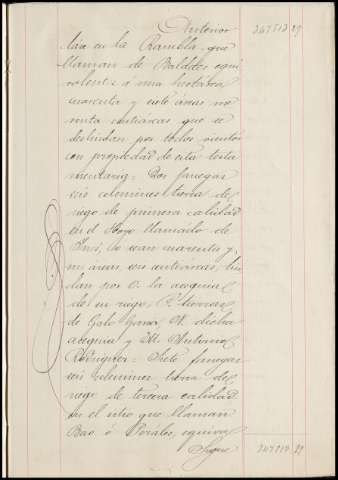 Anterior 247513 29
las en la Rambla que
llaman de Baldites equi
valentes á una hectárea
cuarenta y siete áreas no
venta centiáreas que se
deslindan por todos vientos
con propiedad de esta testa
mentaria = Dos fanegas
seis celemines tierra de
riego de primera calidad
en el Hoyo llamado de
Inés, ó sean cuarenta y
áreas, seis centiáreas, lin
dan por O. la acequia
de su riego, P. tierras
de Galo M. dicha
acequia y N. Antonio
Rodriguez = Siete fanegas
seis celemines tierra de
riego de tercera calidad
en el sitio que llaman
ó Perales, equiva
Sigue 247513 29